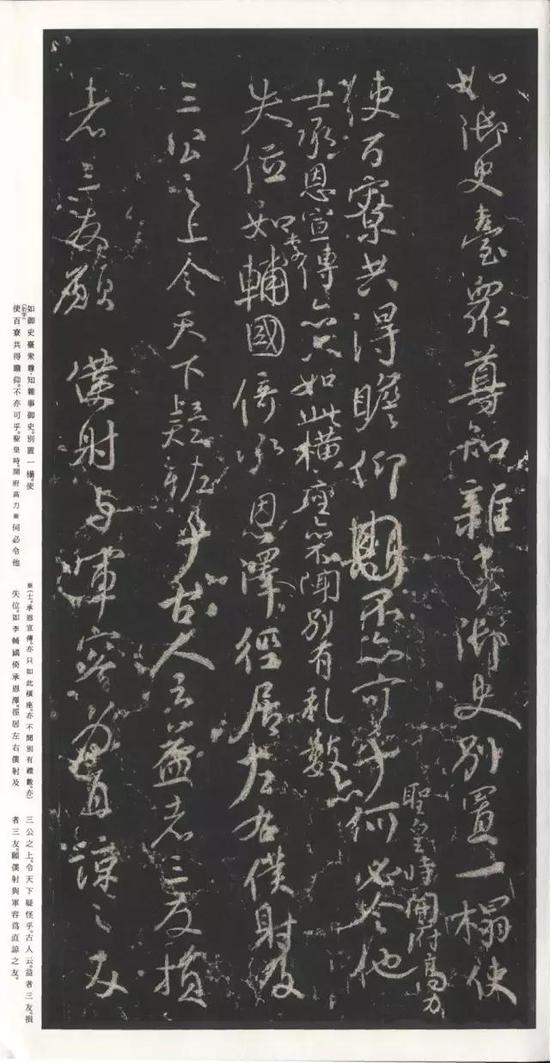 如御史臺眾尊知雜事御史別置一榻使
使百寮共得瞻仰不亦可乎何必令他
聖皇時開府高力
士承恩宣傳亦只如此橫座亦不聞別有礼數亦
失位如李輔國倚承恩澤徑居左右僕射及
三公之上令天下疑怪乎古人云益者三友損
者三友願僕射与軍容為直諒之友
如御史臺衆尊,知雜事御史,別置一榻。使
使百寮共得瞻仰,不亦可乎。聖皇時,開府高力※何必令他
※(士。承恩宣傳,亦只如此橫座,亦不聞別有禮數。亦)
失位。如李輔國倚承恩澤,徑居左右僕射及
三公之上,令天下疑怪乎。古人云,益者三友,損
者三友。願僕射與軍容爲直諒之友。